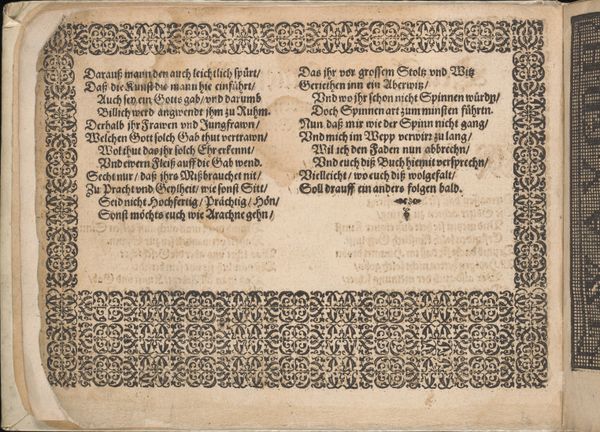 Darauß mann den auch leichtlich spürt/
Daß die Kunst die mann hie einführt/
Auch sey ein Gotts gab/ vnd darumb
Billich werd angwendt jhm zu Ruhm.
Derhalb jhr Frawen vnd Jungfrawen/
Welchen Gott solch Gab thut vertrawn/
Wol thut das jhr solch Ehr erkennt/
Vnd ewern Fleiß auff die Gab wend.
Secht nur/ daß jhrs Mißbrauchet nit/
Zu Pracht vnd Geylheit/ wie sonst Sitt/
Seid nicht Hochfertig/ Prächtig/ Hön/
Sonst möchts euch wie Arachne gehn/
Das jhr vor grossem Stoltz vnd Witz
Geriethen inn ein Aberwitz/
Vnd wo jhr schon nicht Spinnen würdn/
Doch Spinnen art zum minsten führtn.
Nun daß mir wie der Spinn nicht gang/
Vnd mich im Wepp verwirr zu lang/
Wil ich den Faden nun abbrechn/
Vnd euch diß Buch hiemit versprechn/
Vielleicht/ wo euch diß wolgefalt/
Soll drauff ein anders folgen bald.